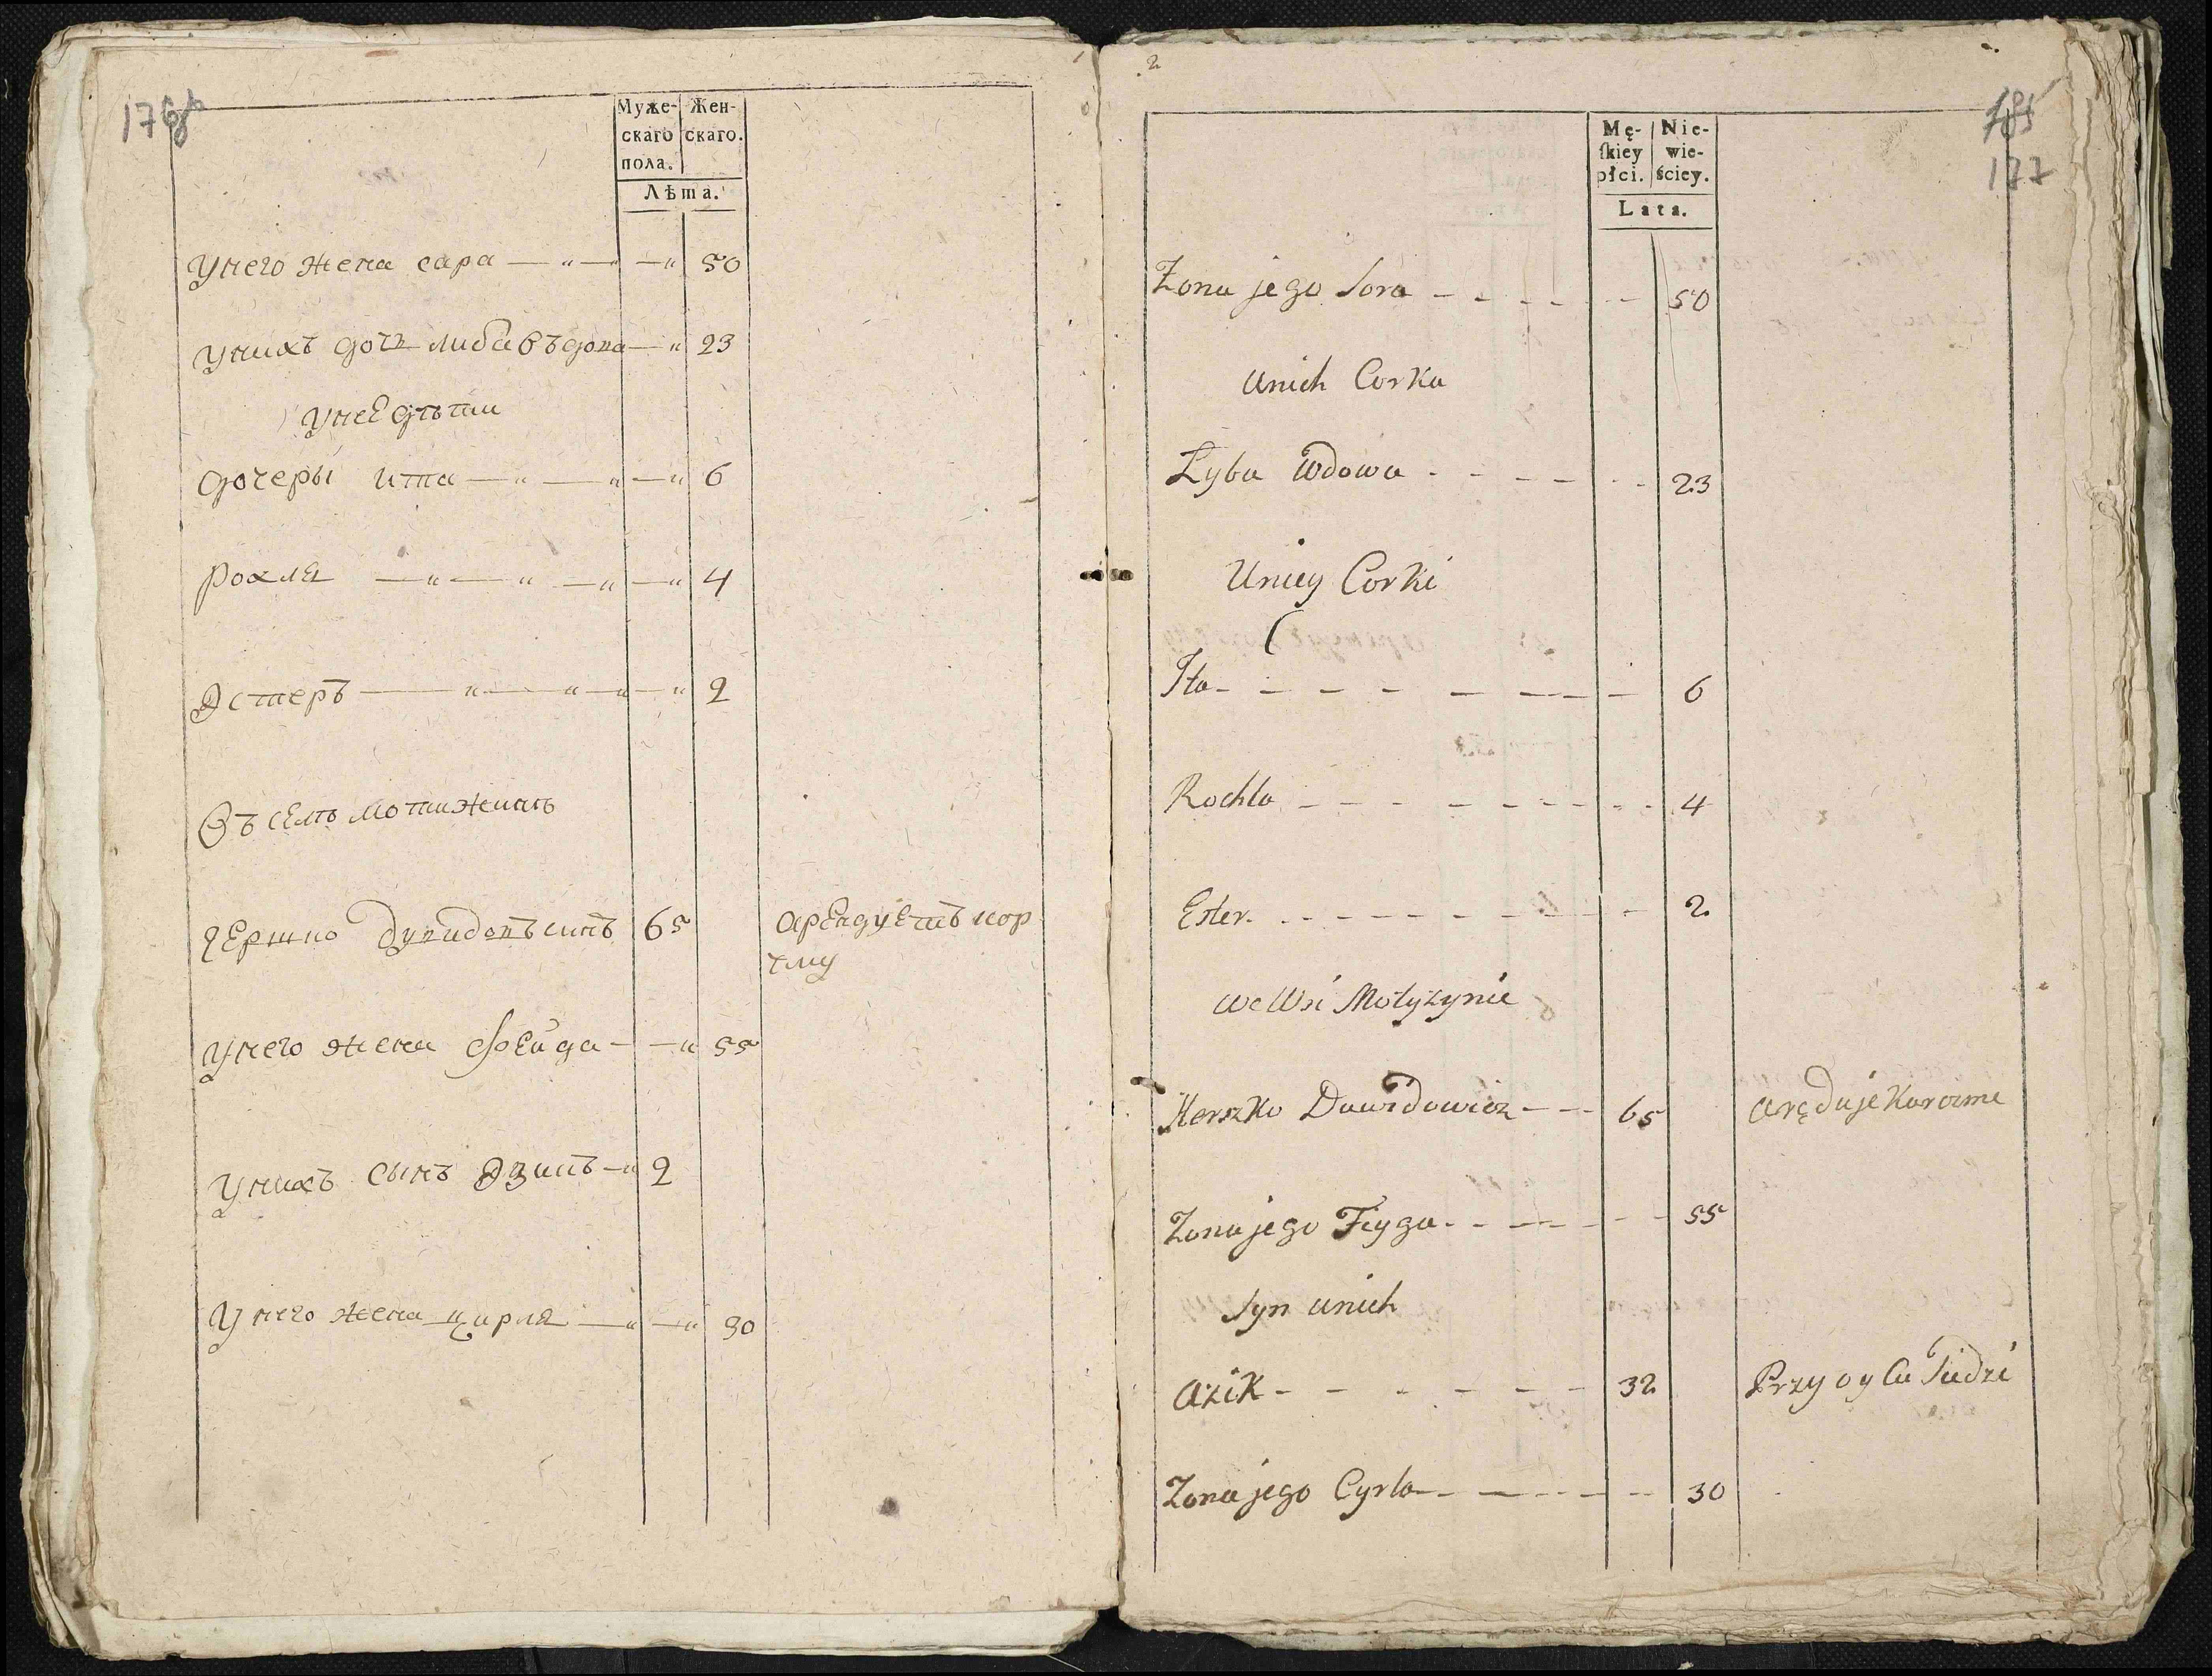 176
Муже- Жен-
скаго скаго.
пола.
Лѣта.
У него жена сара — 50
У нихъ дочь либа въдова — 23
У нее дѣти
дочеры ита — 6
Рохля — 4
Эстеръ — 2
Въ селѣ мотижинѣ
Гершко Дувидовъ синъ 65 арендуетъ кор
чму
У него жена Фейга — 55
У нихъ сынъ Эзикъ — 2
У него жена цирля — 30
2
185
177
Mę- Nie-
skiey wie-
płci. ściey.
Lata.
Żona jego Sora — 50
unich Corka
Lyba Wdowa — 23
Uniey Corki
Ita — 6
Rochla — 4
Ester — 2
we Wsi Motyżynie
Herszko Dawidowicz — 65 aręduje Karczme
Zona jego Feyga — 55
Syn unich
Azik — 32 Przy oyCu Siedzi
Zona jego Cyrla — 30